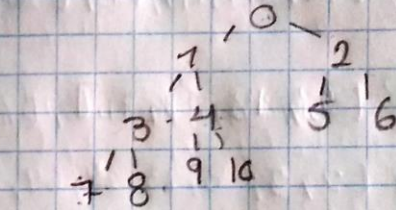 0
1 2
3 4 5 6
7 8 9 10